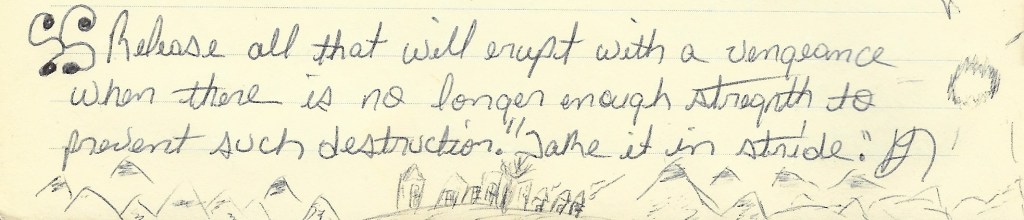 Release all that will erupt with a vengeance
when there is no longer enough stregnth to
prevent such destruction. "Take it in stride."